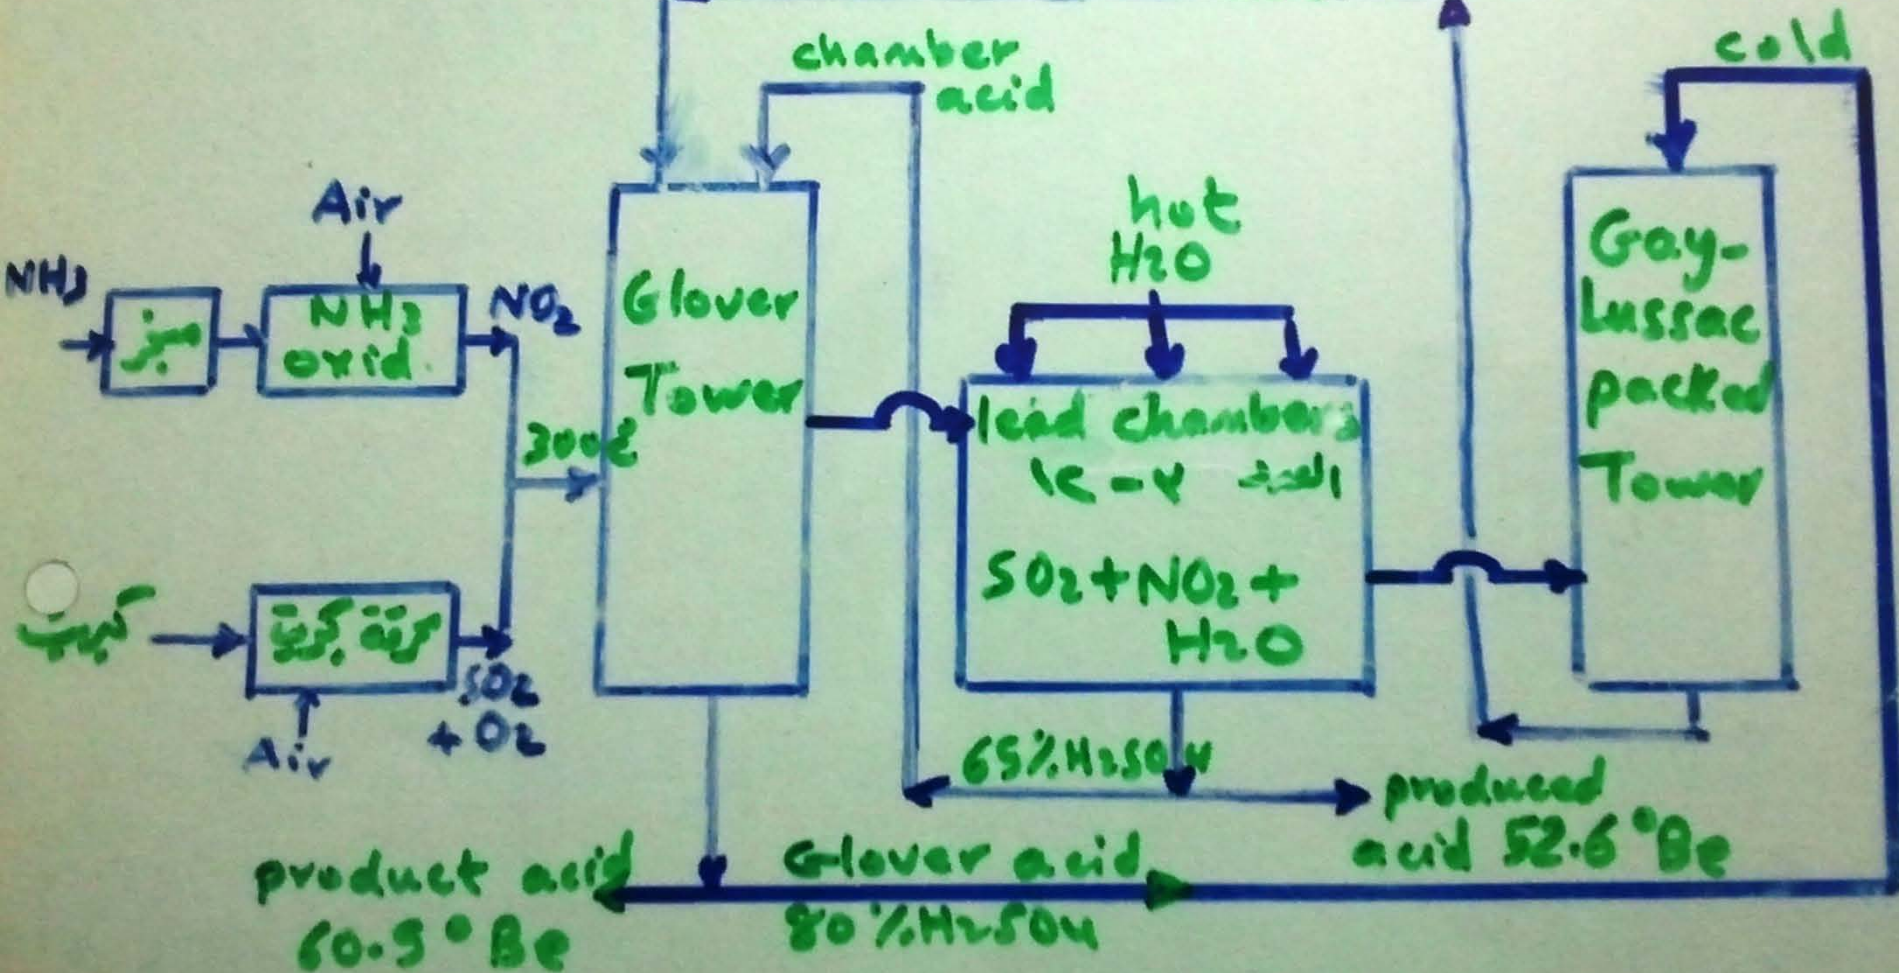 chamber
acid
cold
Air
NH3
NH3
oxid.
NO2
Glover
Tower
hot
H2O
Gay-
Lussac
packed
Tower
lead chambers
SO2+NO2+
H2O
كبريت
Air
SO2
+ O2
65% H2SO4
produced
acid 52.6°Be
product acid
60.5°Be
Glover acid
80% H2SO4